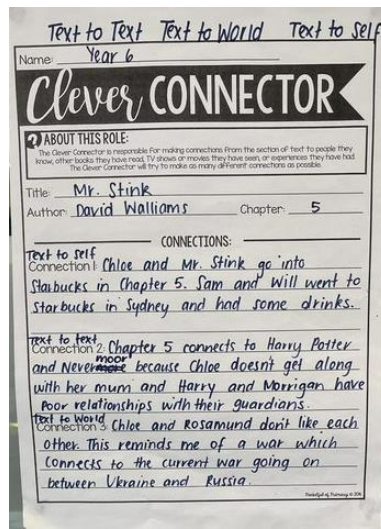 Text to Text Text to World Text to Self
Name: Year 6
Clever CONNECTOR
? ABOUT THIS ROLE:
The Clever Connector is responsible for making connections from the section of text to people they
know, other books they have read, TV shows or movies they have seen, or experiences they have had.
The Clever Connector will try to make as many different connections as possible.
Title: Mr. Stink
Author: David Walliams Chapter: 5
CONNECTIONS:
Text to self
Connection 1: Chloe and Mr. Stink go into
Starbucks in Chapter 5. Sam and Will went to
Starbucks in Sydney and had some drinks.
Text to text
Connection 2: Chapter 5 connects to Harry Potter
moor
and Nevermore because Chloe doesn't get along
with her mum and Harry and Morrigan have
poor relationships with their guardians.
Text to World
Connection 3: Chloe and Rosamund don't like each
other. This reminds me of a war which
connects to the current war going on
between Ukraine and Russia.